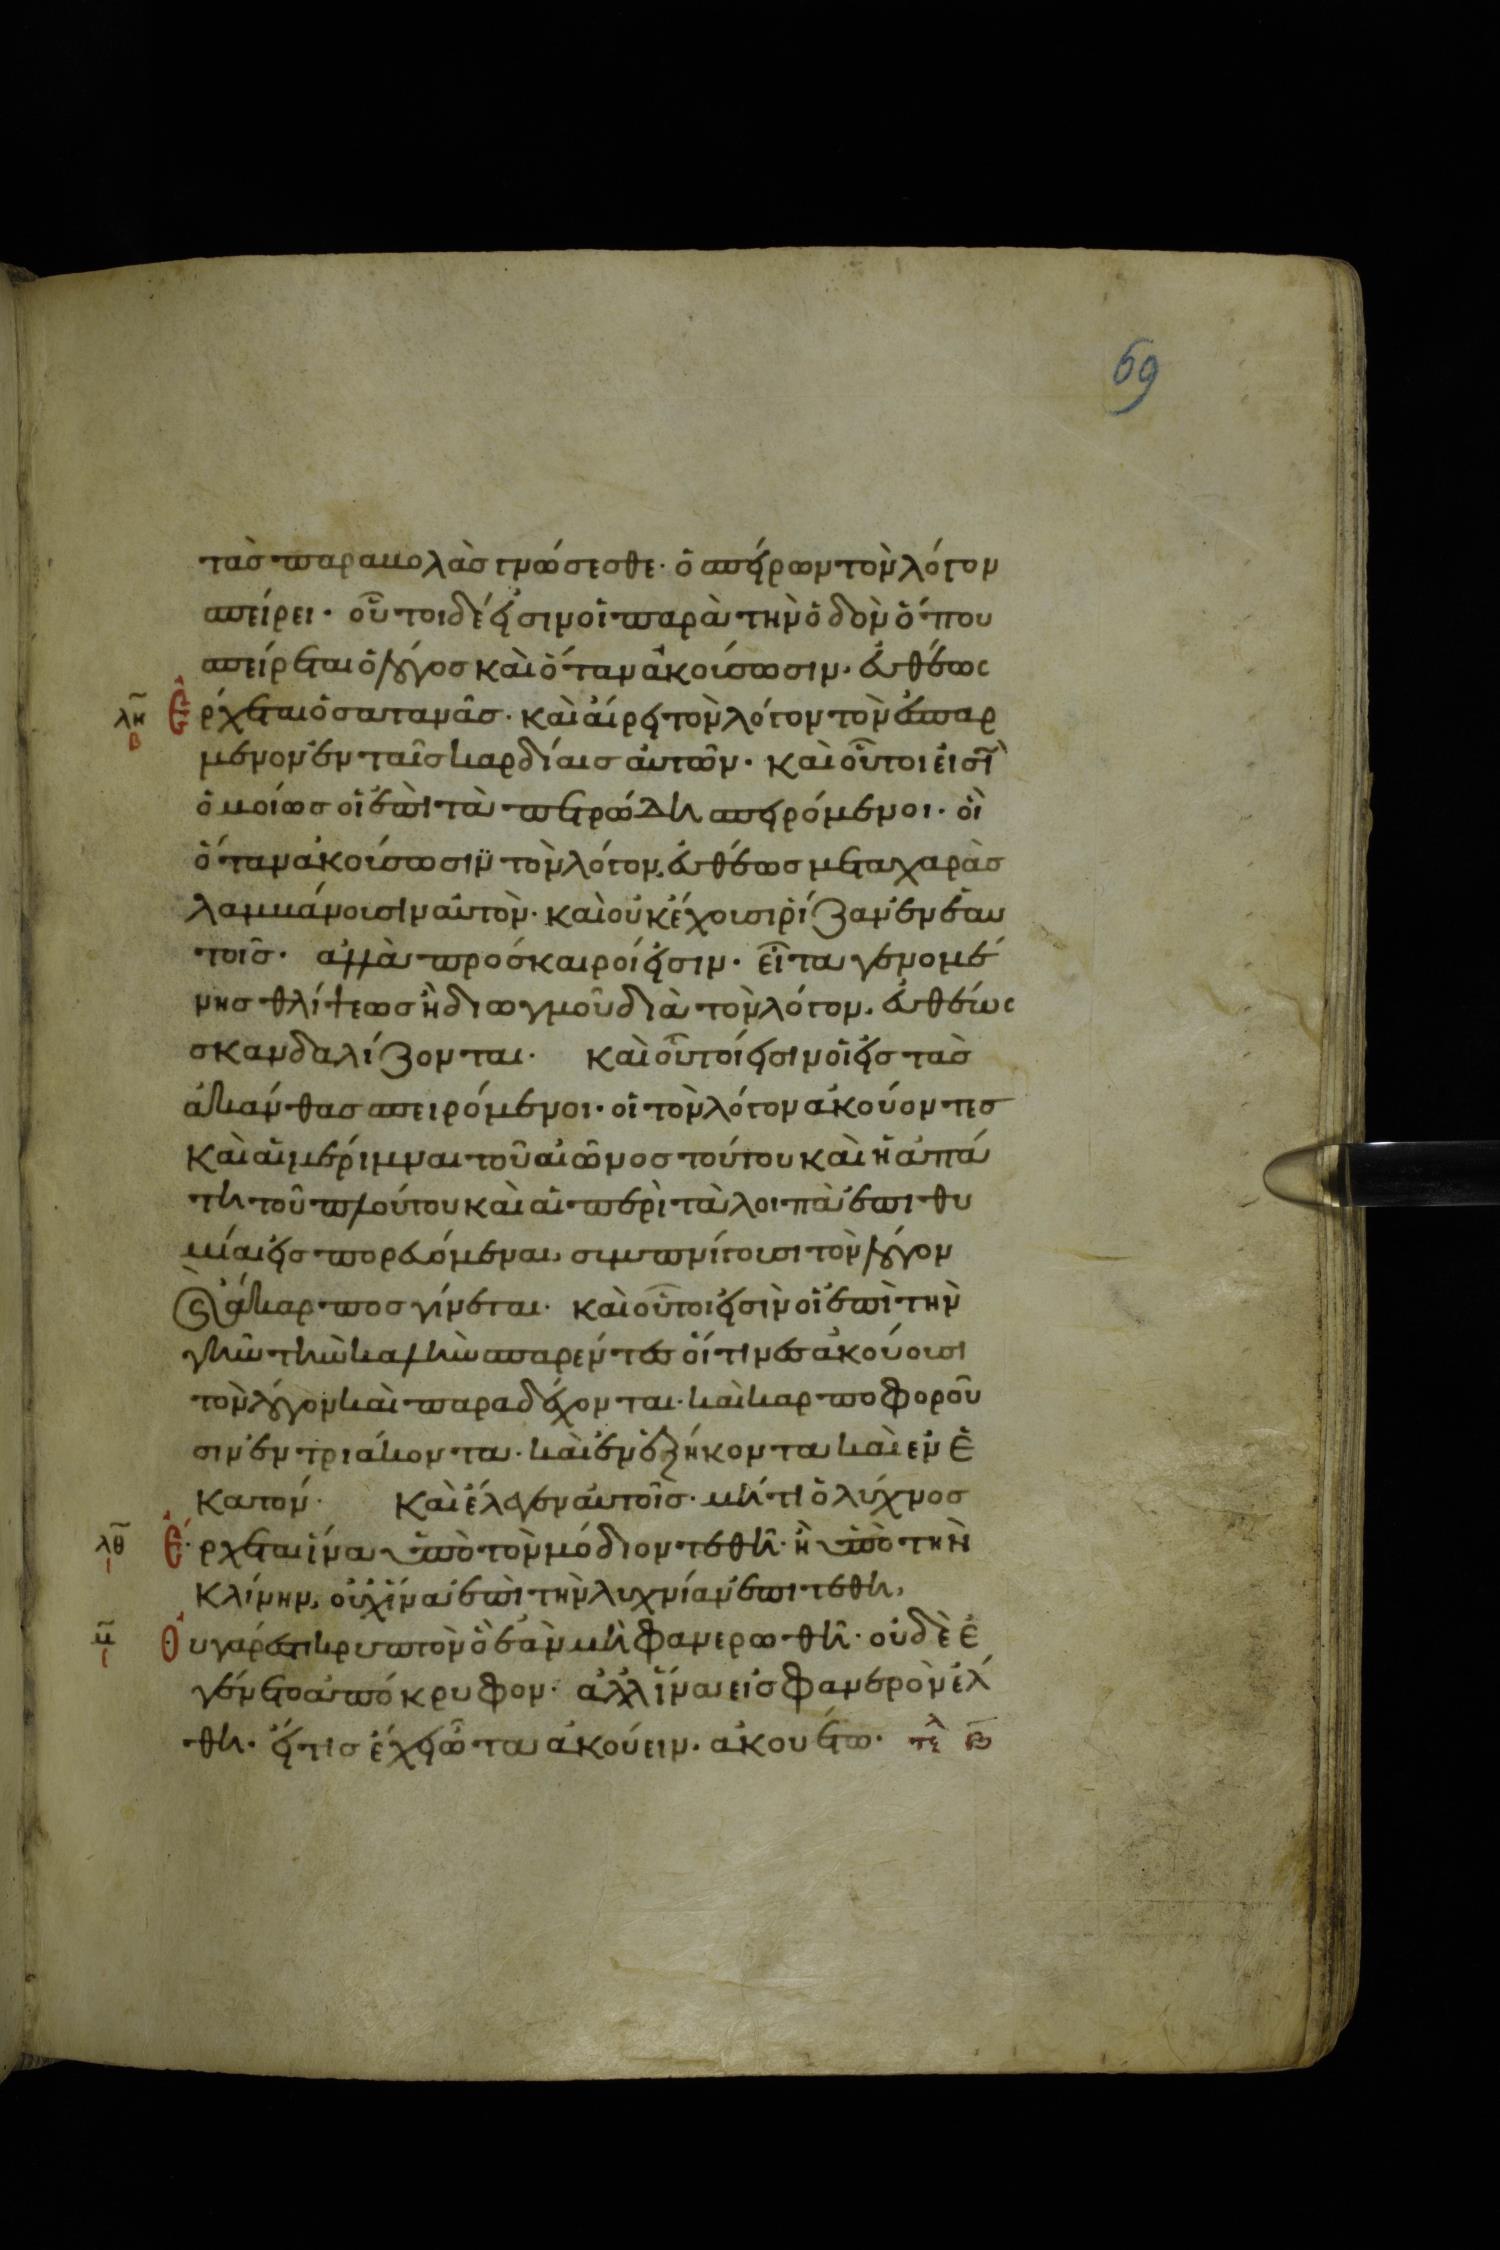 69
τὰσ παραβολὰσ γνώσεσθε· ὁ σπείρων τὸν λόγον
σπείρει· οὗτοι δέ εἰσιν οἱ παρὰ τὴν ὁδὸν ὅπου
σπείρεται ὁ λόγοσ καὶ ὅταν ἀκούσωσιν. ἐυθέωσ
λη β Ἔρχεται ὁ σατανᾶσ· καὶ αἴρει τὸν λόγον τὸν ἐσπαρ
μένον ἐν ταῖσ καρδίαισ ἀυτῶν· καὶ οὗτοι εἰσῒ
ὁμοίωσ οἱ ἐπὶ τὰ πετρώδη σπειρόμενοι· οἳ
ὅταν ἀκούσωσιν τὸν λόγον, ἐυθέωσ μετα χαρὰσ
λαμβάνουσιν αὐτὸν· καὶ οὐκ ἔχουσι ῥίζαν ἐν ἑαυ
τοῖσ· ἀλλὰ πρόσκαιροί εἰσιν· εἶτα γενομέ
νησ θλίψεωσ ἢ διωγμοῦ διὰ τὸν λόγον. ἐυθέωσ
σκανδαλίζονται· καὶ οὗτοί εἰσιν οἱ εἰσ τὰσ
ἀκάνθασ σπειρόμενοι· οἱ τὸν λόγον ἀκούοντεσ
καὶ αἱ μέριμναι τοῦ αἰῶνοσ τούτου καὶ ἡ ἀπά
τη τοῦ πλούτου καὶ αἱ περὶ τὰ λοιπὰ ἐπιθυ
μίαι εἰσπορευόμεναι, συμπνίγουσι τὸν λόγον
ϛ̀ ἄκαρποσ γίνεται· καὶ οὗτοι εἰσὶν οἱ ἐπὶ τὴν
γῆν τὴν καλὴν σπαρέντεσ οἵτινεσ ἀκούουσι
τὸν λόγον καὶ παραδέχονται· καὶ καρποφοροῦ
σιν ἐν τριάκοντα· καὶ ἐν ἑξήκοντα καὶ ἐν ἑ
κατόν· Καὶ ἔλεγεν ἀυτοῖσ· μή τι ὁ λύχνοσ
λθ ι Ἔρχεται ἵνα ὑπὸ τὸν μόδιον τεθῆ· ἢ ὑπὸ τὴν
κλίνην, οὐχ ἵνα ἐπὶ τὴν λυχνίαν ἐπιτεθῆ,
μ ι Ὀυ γάρ ἐστι κρυπτὸν ὃ ἐὰν μὴ φανερωθῆ· οὐδὲ ἐ
γένετο ἀπόκρυφον· ἀλλ ἵνα εἰσ φανερὸν ἔλ
θη· εἴ τισ ἔχει ὦτα ἀκούειν. ἀκουέτω· τελ β